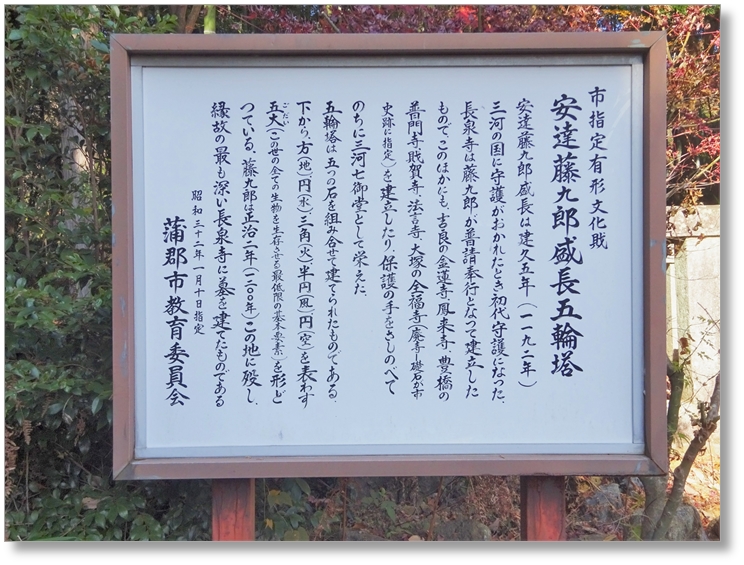 市指定有形文化財
安達藤九郎盛長五輪塔
安達藤九郎盛長は建久五年(一一九二年)
三河の国に守護がおかれたとき初代守護になった、
長泉寺は藤九郎が普請奉行となって建立した
もので、このほかにも、吉良の金蓮寺、鳳来寺、豊橋の
普門寺、財賀寺、法言寺、大塚の全福寺(廃寺—礎石が市
史跡に指定)を建立したり、保護の手をさしのべて
のちに三河七御堂として栄えた、
五輪塔は五つの石を組み合せて建てられたものである、
下から、方(地)、円(水)、三角(火)半円(風)、円(空)を表わす
五大(この世の全ての生物を生存させる最低限の基本要素)を形ど
ごだい
っている、藤九郎は正治二年(一二〇〇年)この地に殁し、
縁故の最も深い長泉寺に墓を建てたものである
昭和三十二年一月十日指定
蒲郡市教育委員会